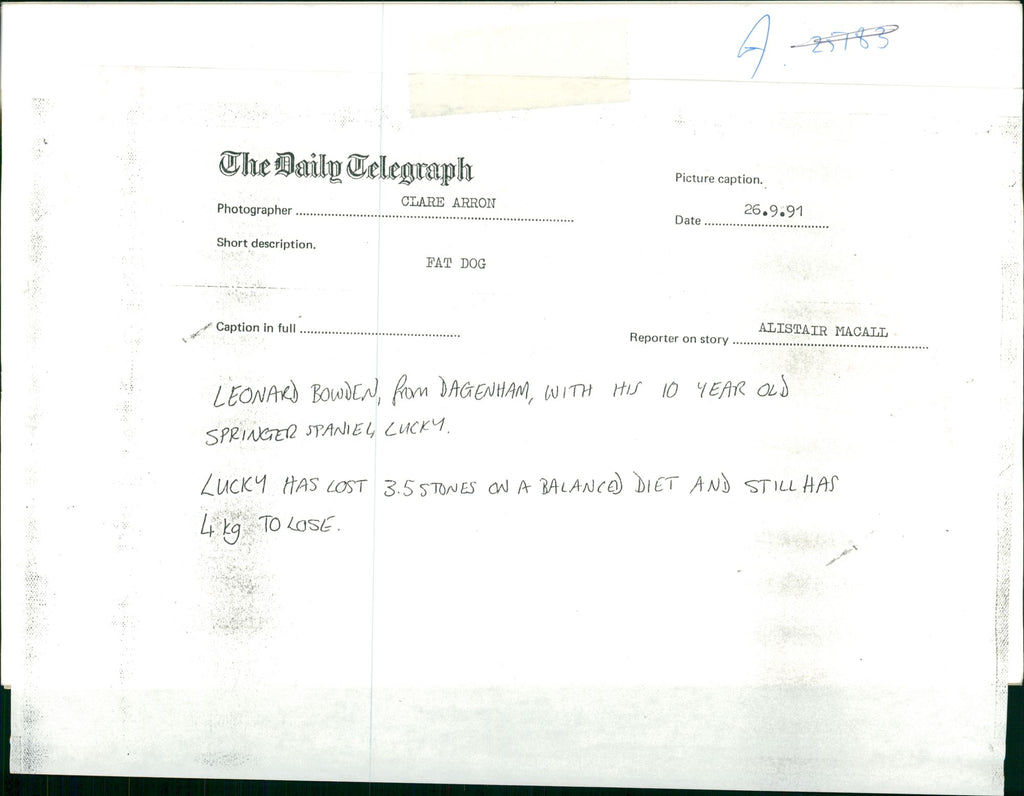 A 25783
The Daily Telegraph
Picture caption.
Photographer CLARE ARRON
Date 26.9.91
Short description.
FAT DOG
Caption in full
Reporter on story ALISTAIR MACALL
LEONARD BOWDEN, from DAGENHAM, WITH HIS 10 YEAR OLD
SPRINGER SPANIEL, LUCKY.
LUCKY HAS LOST 3.5 STONES ON A BALANCED DIET AND STILL HAS
4 kg TO LOSE.